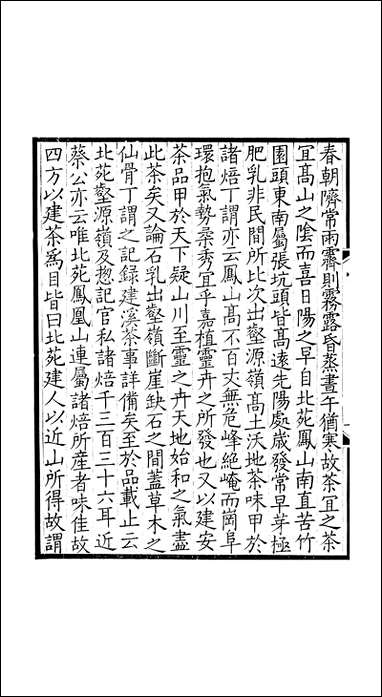 春朝隮常雨霽則霧露昏蒸晝午猶寒故茶宜之茶
宜高山之陰而喜日陽之早自北苑鳳山南直苦竹
園頭東南屬張坑頭皆高遠先陽處歲發常早芽極
肥乳非民間所比次出壑源嶺高土沃地茶味甲於
諸焙丁謂亦云鳳山高不百丈無危峰絕崦而崗阜
環抱氣勢柔秀宜乎嘉植靈卉之所發也又以建安
茶品甲於天下疑山川至靈之卉天地始和之氣盡
此茶矣又論石乳出壑嶺斷崖缺石之間蓋草木之
仙骨丁謂之記錄建溪茶事詳備矣至於品載止云
北苑壑源嶺及惣記官私諸焙千三百三十六耳近
蔡公亦云唯北苑鳳凰山連屬諸焙所産者味佳故
四方以建茶爲目皆曰北苑建人以近山所得故謂